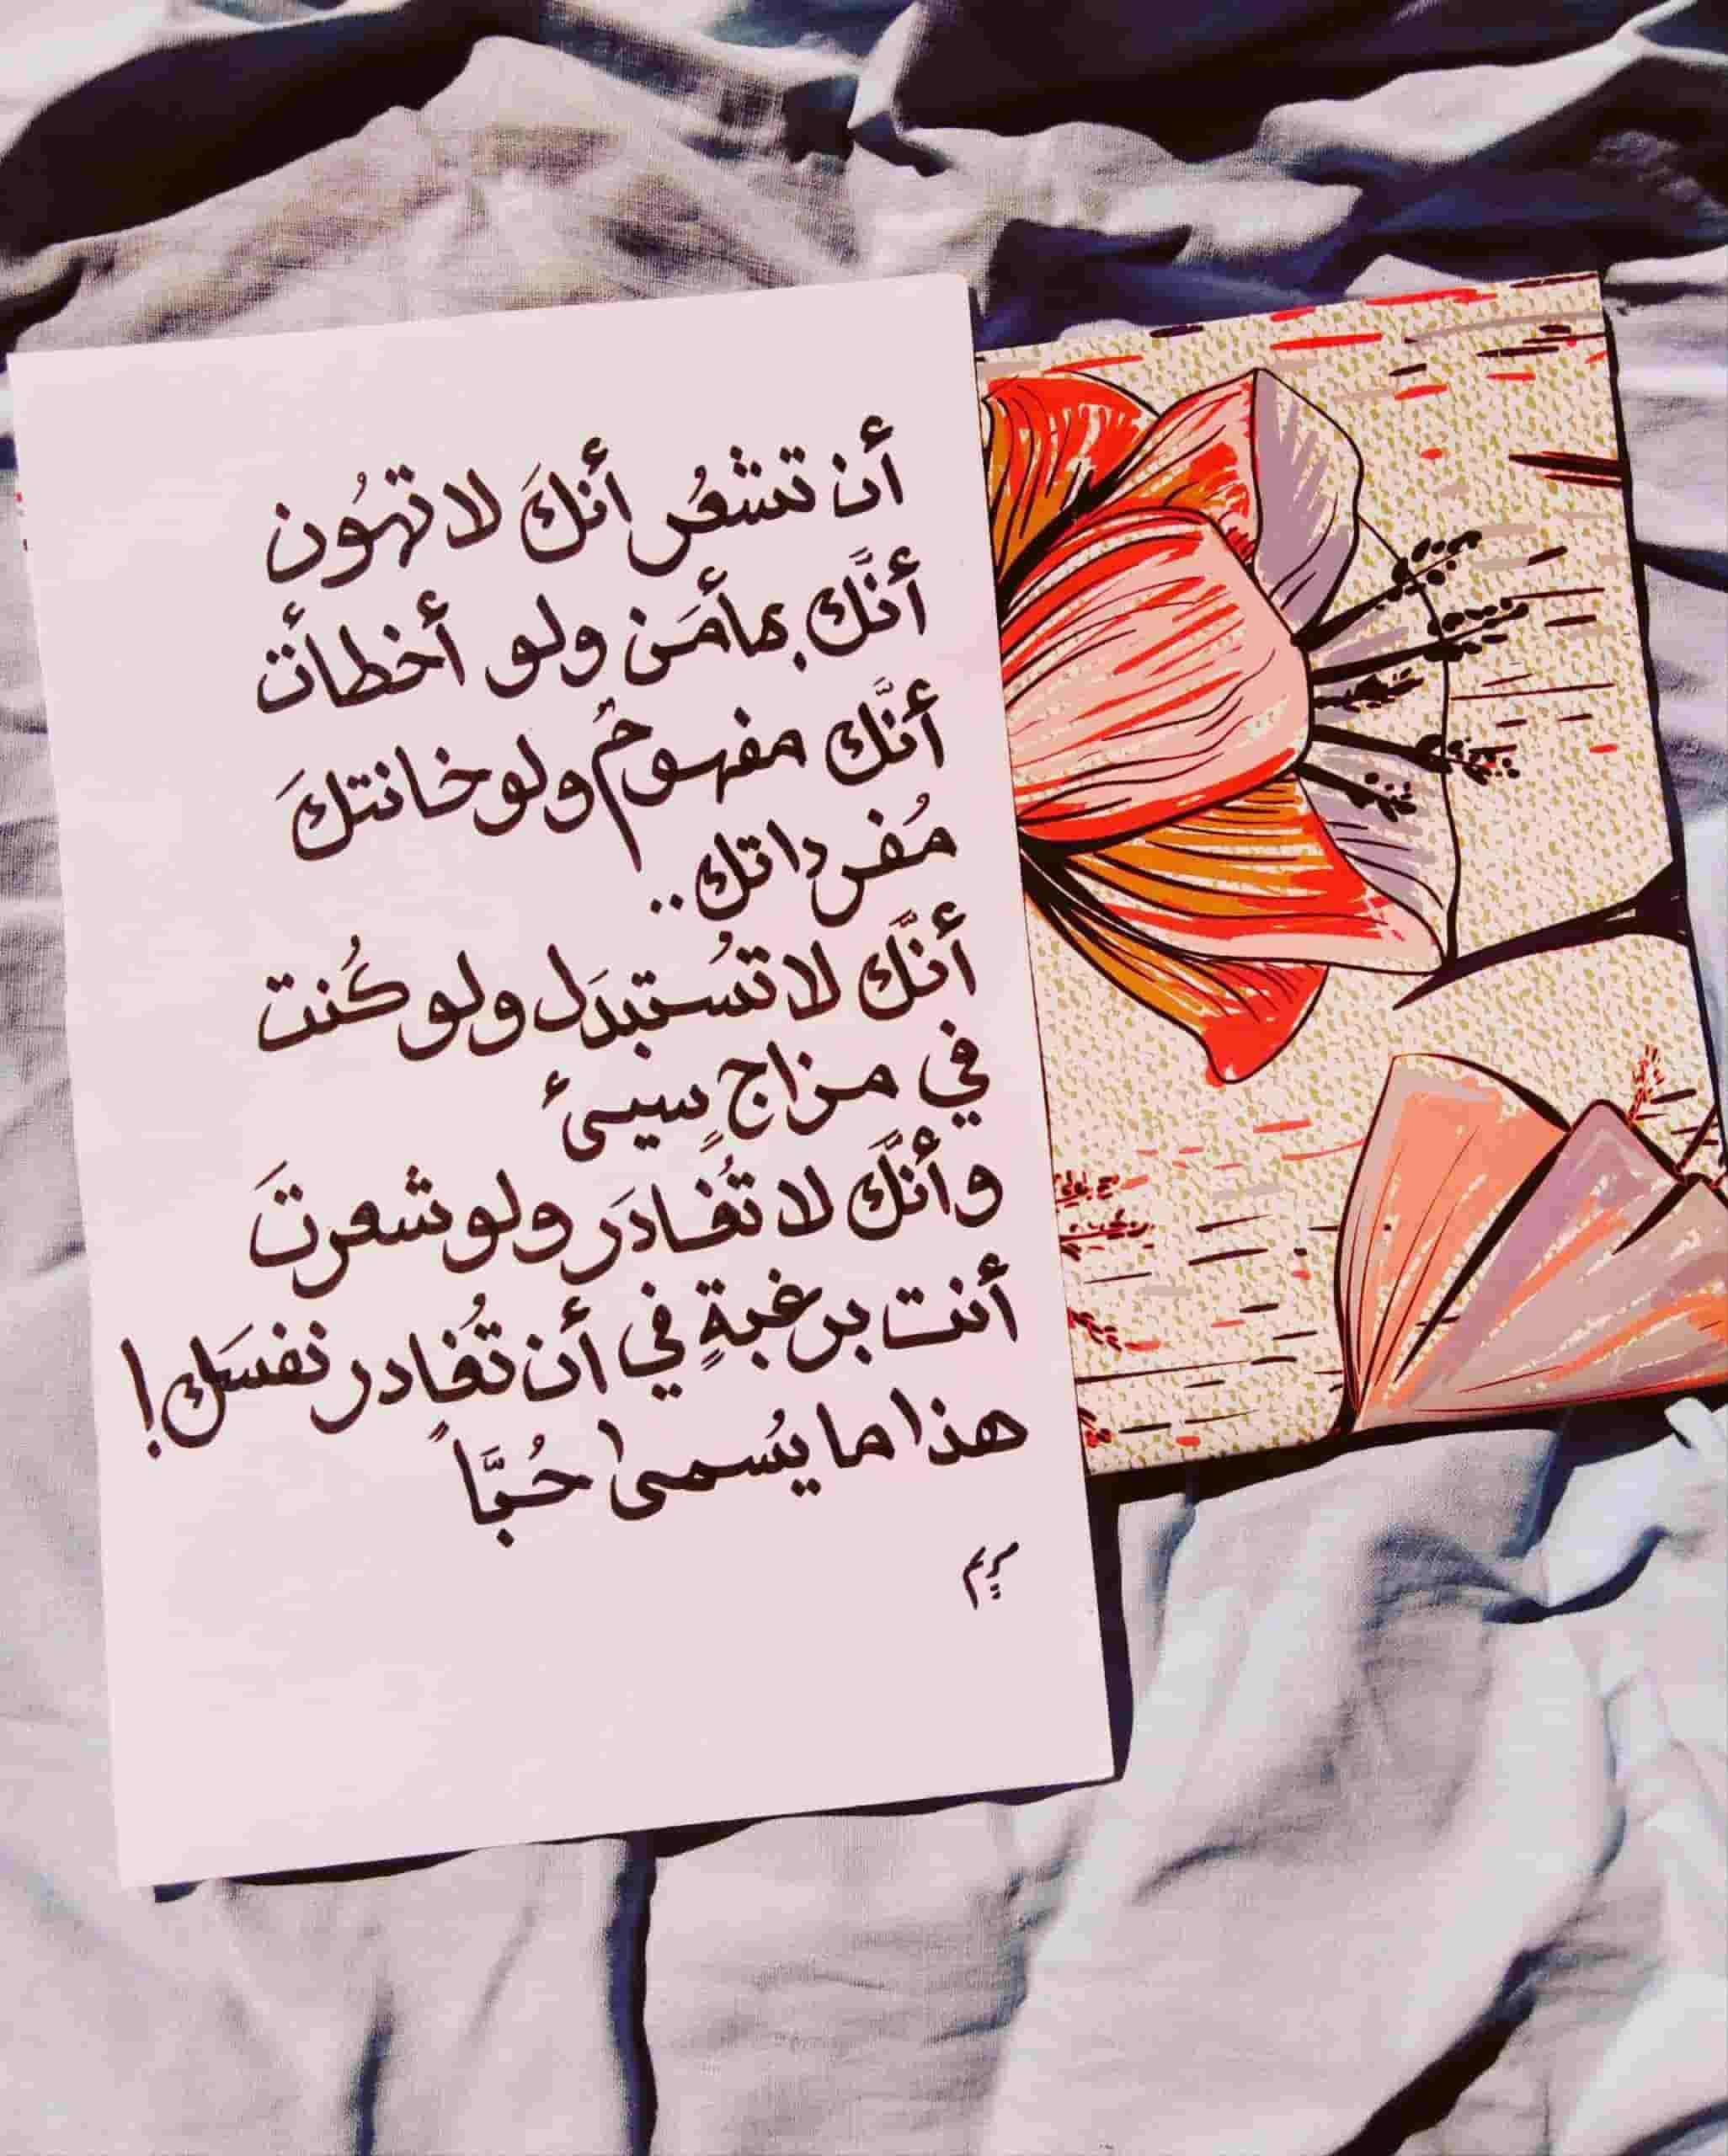 أن تشعُر أنكَ لا تهُون
أنَّك بمأمَن ولو أخطأت
أنَّك مفهومٌ ولو خانتكَ
مُفرداتك..
أنَّك لا تُستبدَل ولو كُنت
في مزاجٍ سيىء
وأنَّك لا تُغادَر ولو شعرتَ
أنت برغبةٍ في أن تُغادر نفسَك!
هذا ما يُسمىٰ حُبَّاً
مريم